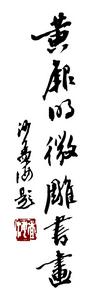 黄明微雕書畫
沙孟海題